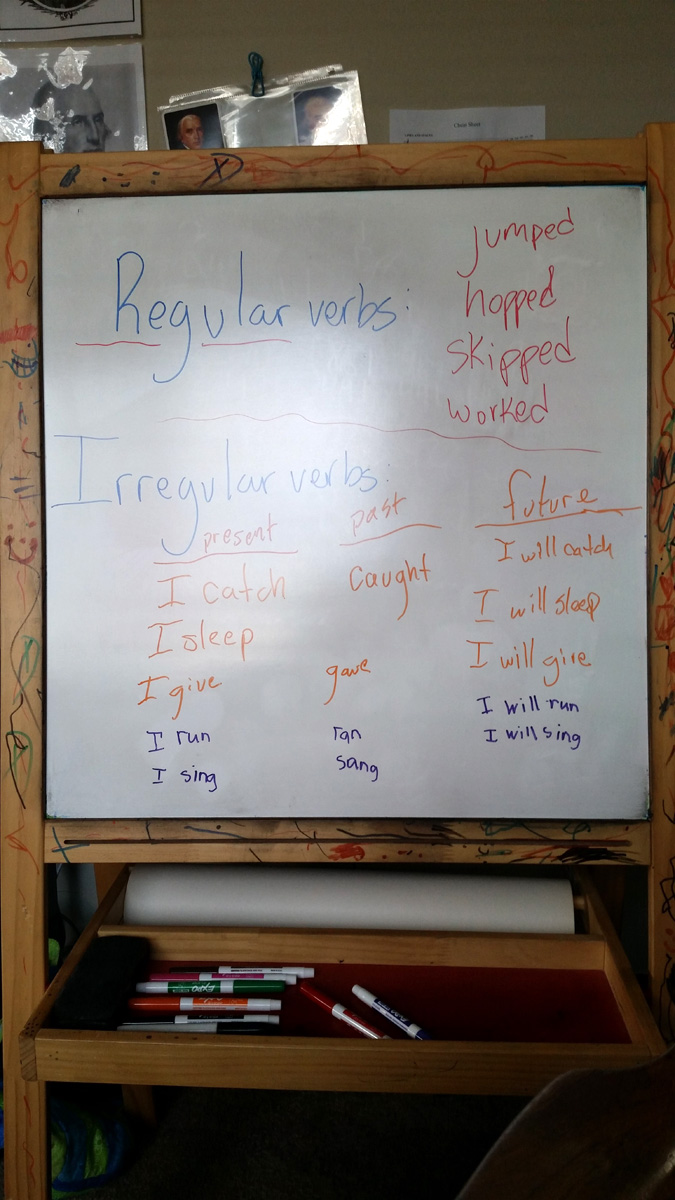 Regular verbs:
jumped
hopped
skipped
worked
Irregular verbs:
present past future
I catch caught I will catch
I sleep I will sleep
I give gave I will give
I run ran I will run
I sing sang I will sing
EXPO